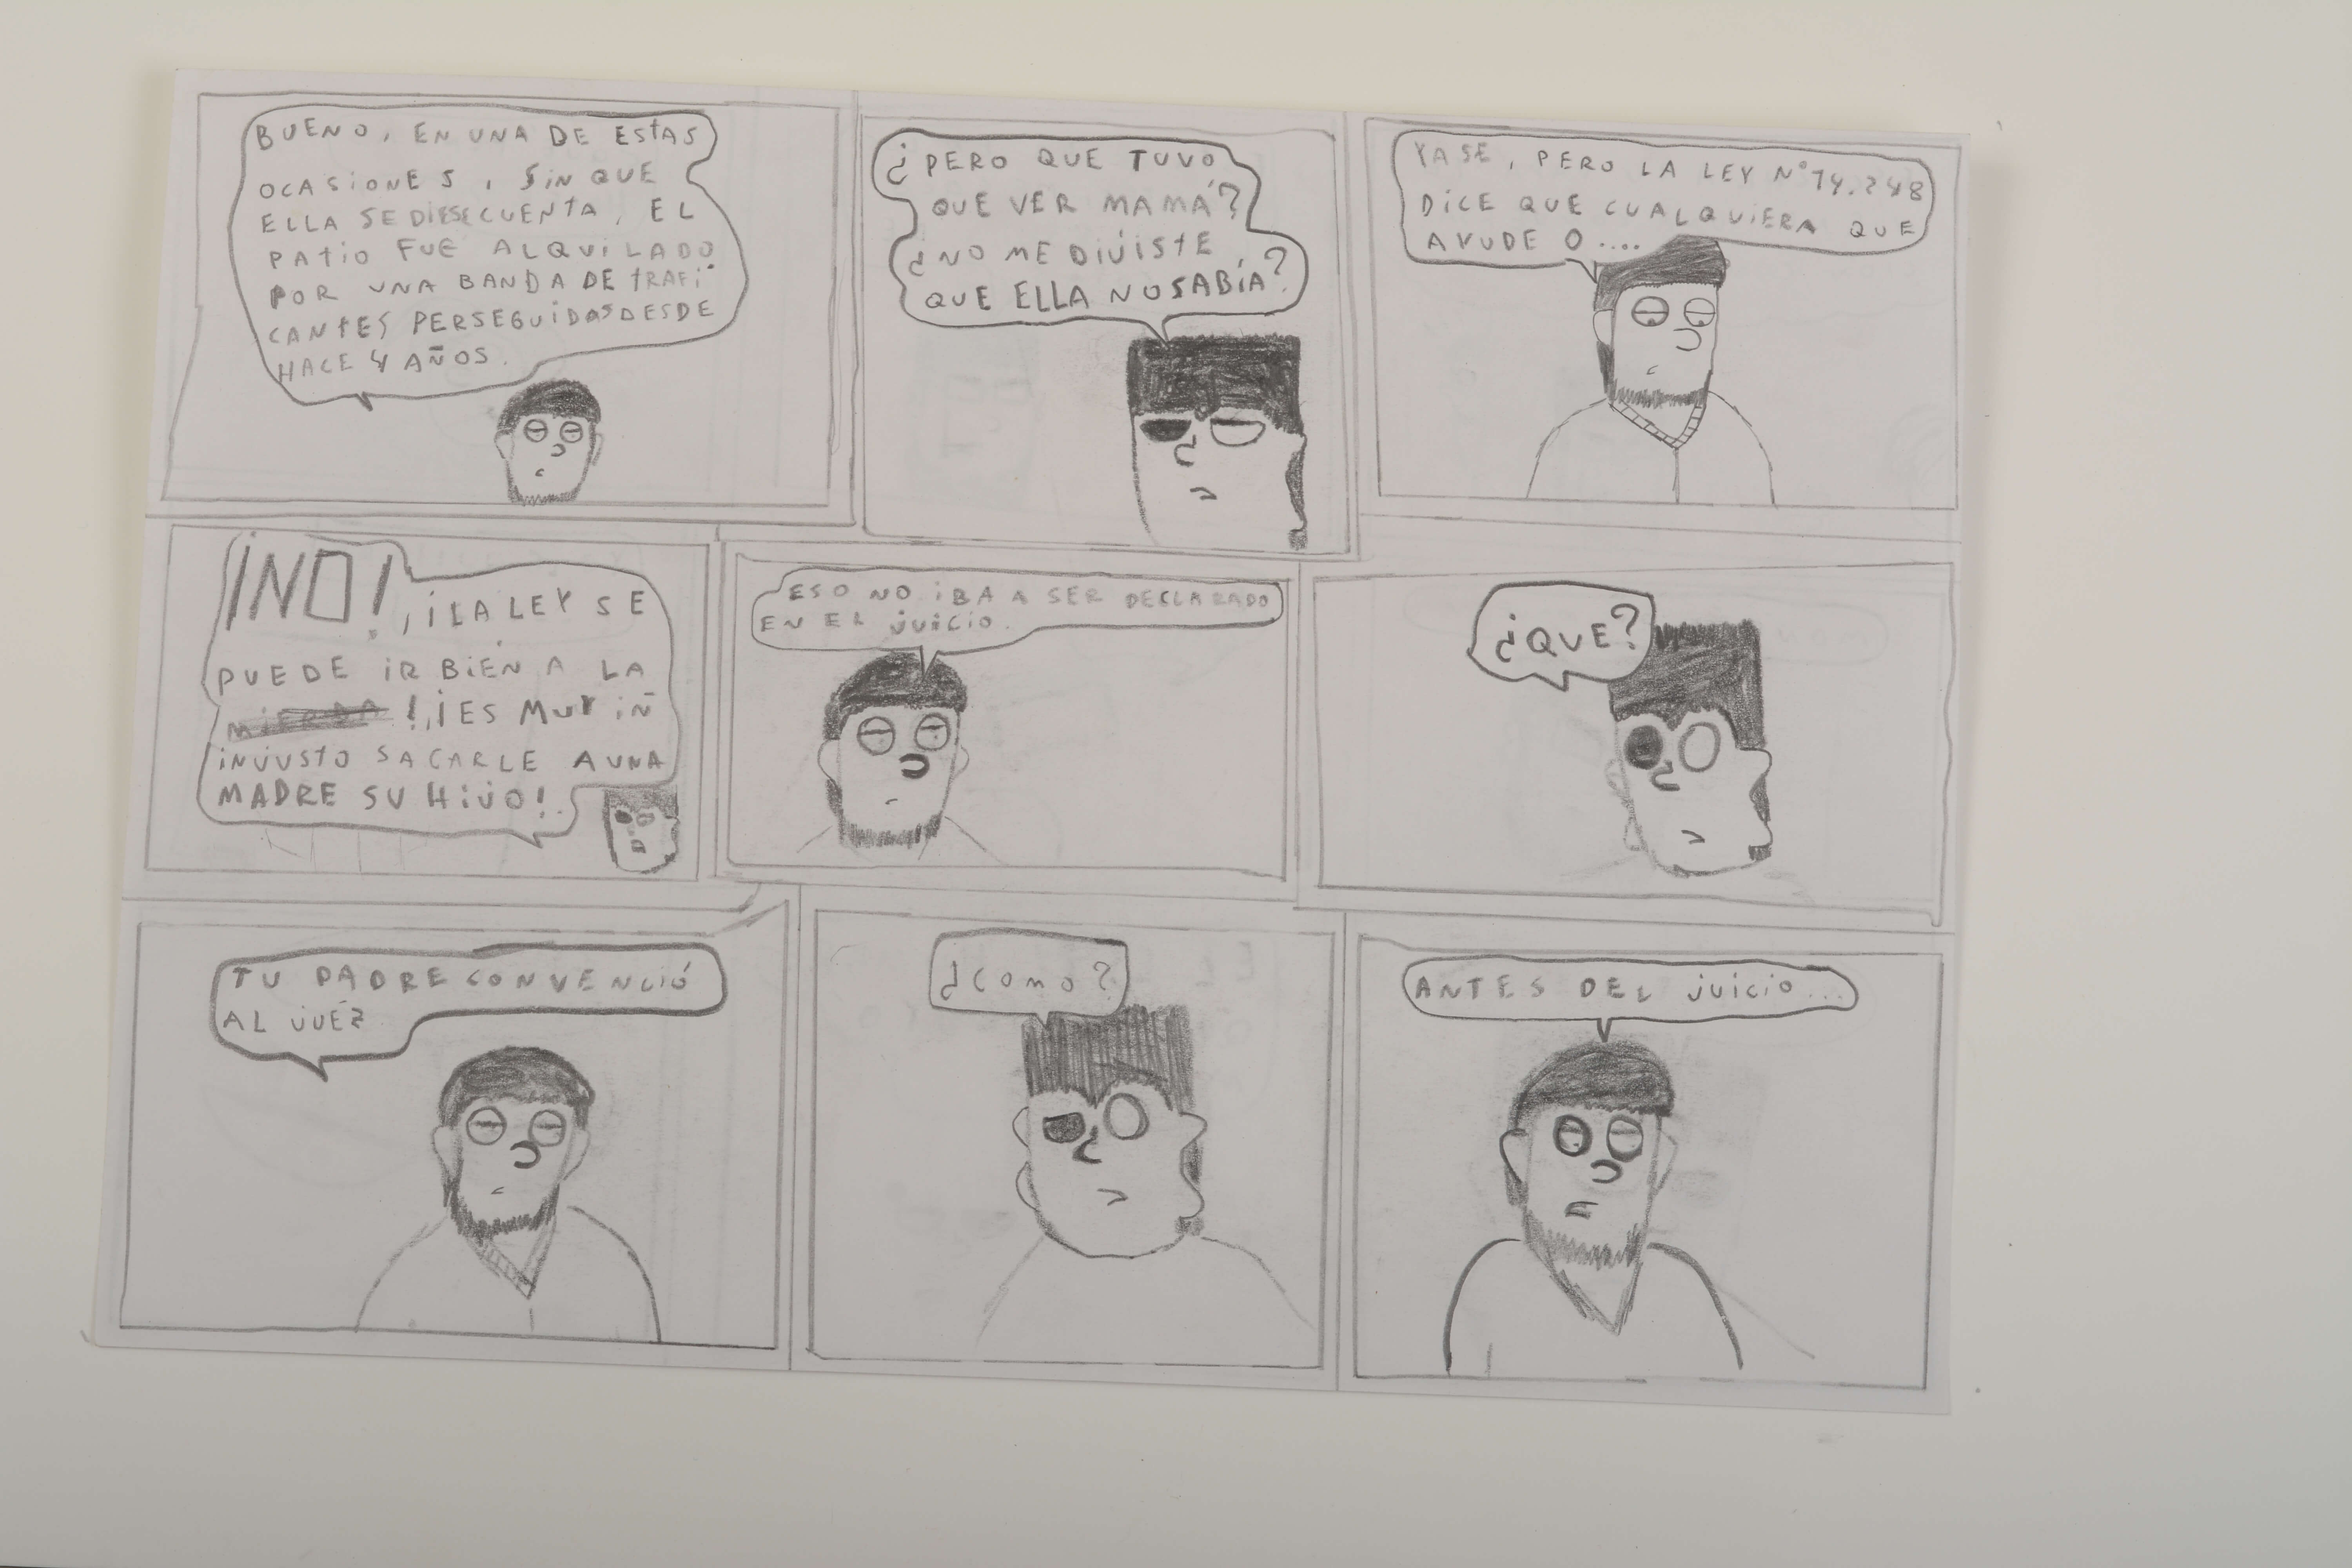 BUENO, EN UNA DE EStAS
OCASIONES, SIN QUE
ELLA SE DIESE CUENTA, EL
PATIO FUE ALQUILADO
POR UNA BANDA DE tRAFI-
CANTES PERSEGUIDAS DESDE
HACE 4 AÑOS.
¿PERO QUE TUVO
QUE VER MAMÁ?
¿NO ME DIJISTE,
QUE ELLA NO SABÍA?
YA SE, PERO LA LEY Nº 14.248
DICE QUE CUALQUIERA QUE
AYUDE O....
¡NO!, ¡LA LEY SE
PUEDE IR BIEN A LA
MIERDA!, ¡ES MUY IÑ
INJUSTO SACARLE A UNA
MADRE SU HIJO!
ESO NO IBA A SER DECLARADO
EN EL JUICIO.
¿QUE?
TU PADRE CONVENCIÓ
AL JUEZ
¿COMO?
ANTES DEL JUICIO...